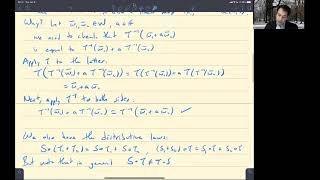 Why? Let w̄₁, w̄₂ ∈ W, a ∈ F
we need to check that T⁻¹(w̄₁ + a w̄₂)
is equal to T⁻¹(w̄₁) + a T⁻¹(w̄₂)
Apply T to the latter:
T(T⁻¹(w̄₁) + a T⁻¹(w̄₂)) = T(T⁻¹(w̄₁)) + a T(T⁻¹(w̄₂))
= w̄₁ + a w̄₂
Next, apply T⁻¹ to both sides:
T⁻¹(w̄₁) + a T⁻¹(w̄₂) = T⁻¹(w̄₁ + a w̄₂) ✓
We also have the distributive laws:
S∘(T₁+T₂) = S∘T₁ + S∘T₂, (S₁+S₂)∘T = S₁∘T + S₂∘T
But note that in general S∘T ≠ T∘S